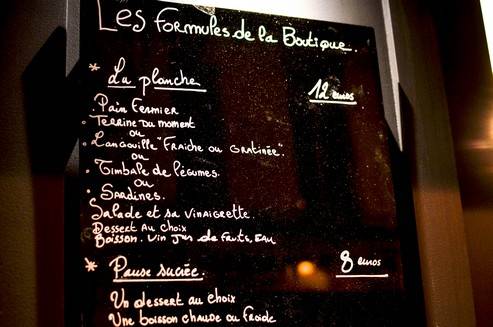 Les formules de la Boutique.
* La planche 12 euros
. Pain Fermier
. Terrine du moment
ou
. Langouille "Fraîche ou Gratinée".
ou
. Timbale de légumes.
ou
. Sardines.
Salade et sa vinaigrette.
Dessert au choix
Boisson. Vin Jus de fruits, Eau
* Pause sucrée. 8 euros
Un dessert au choix
Une boisson chaude ou froide